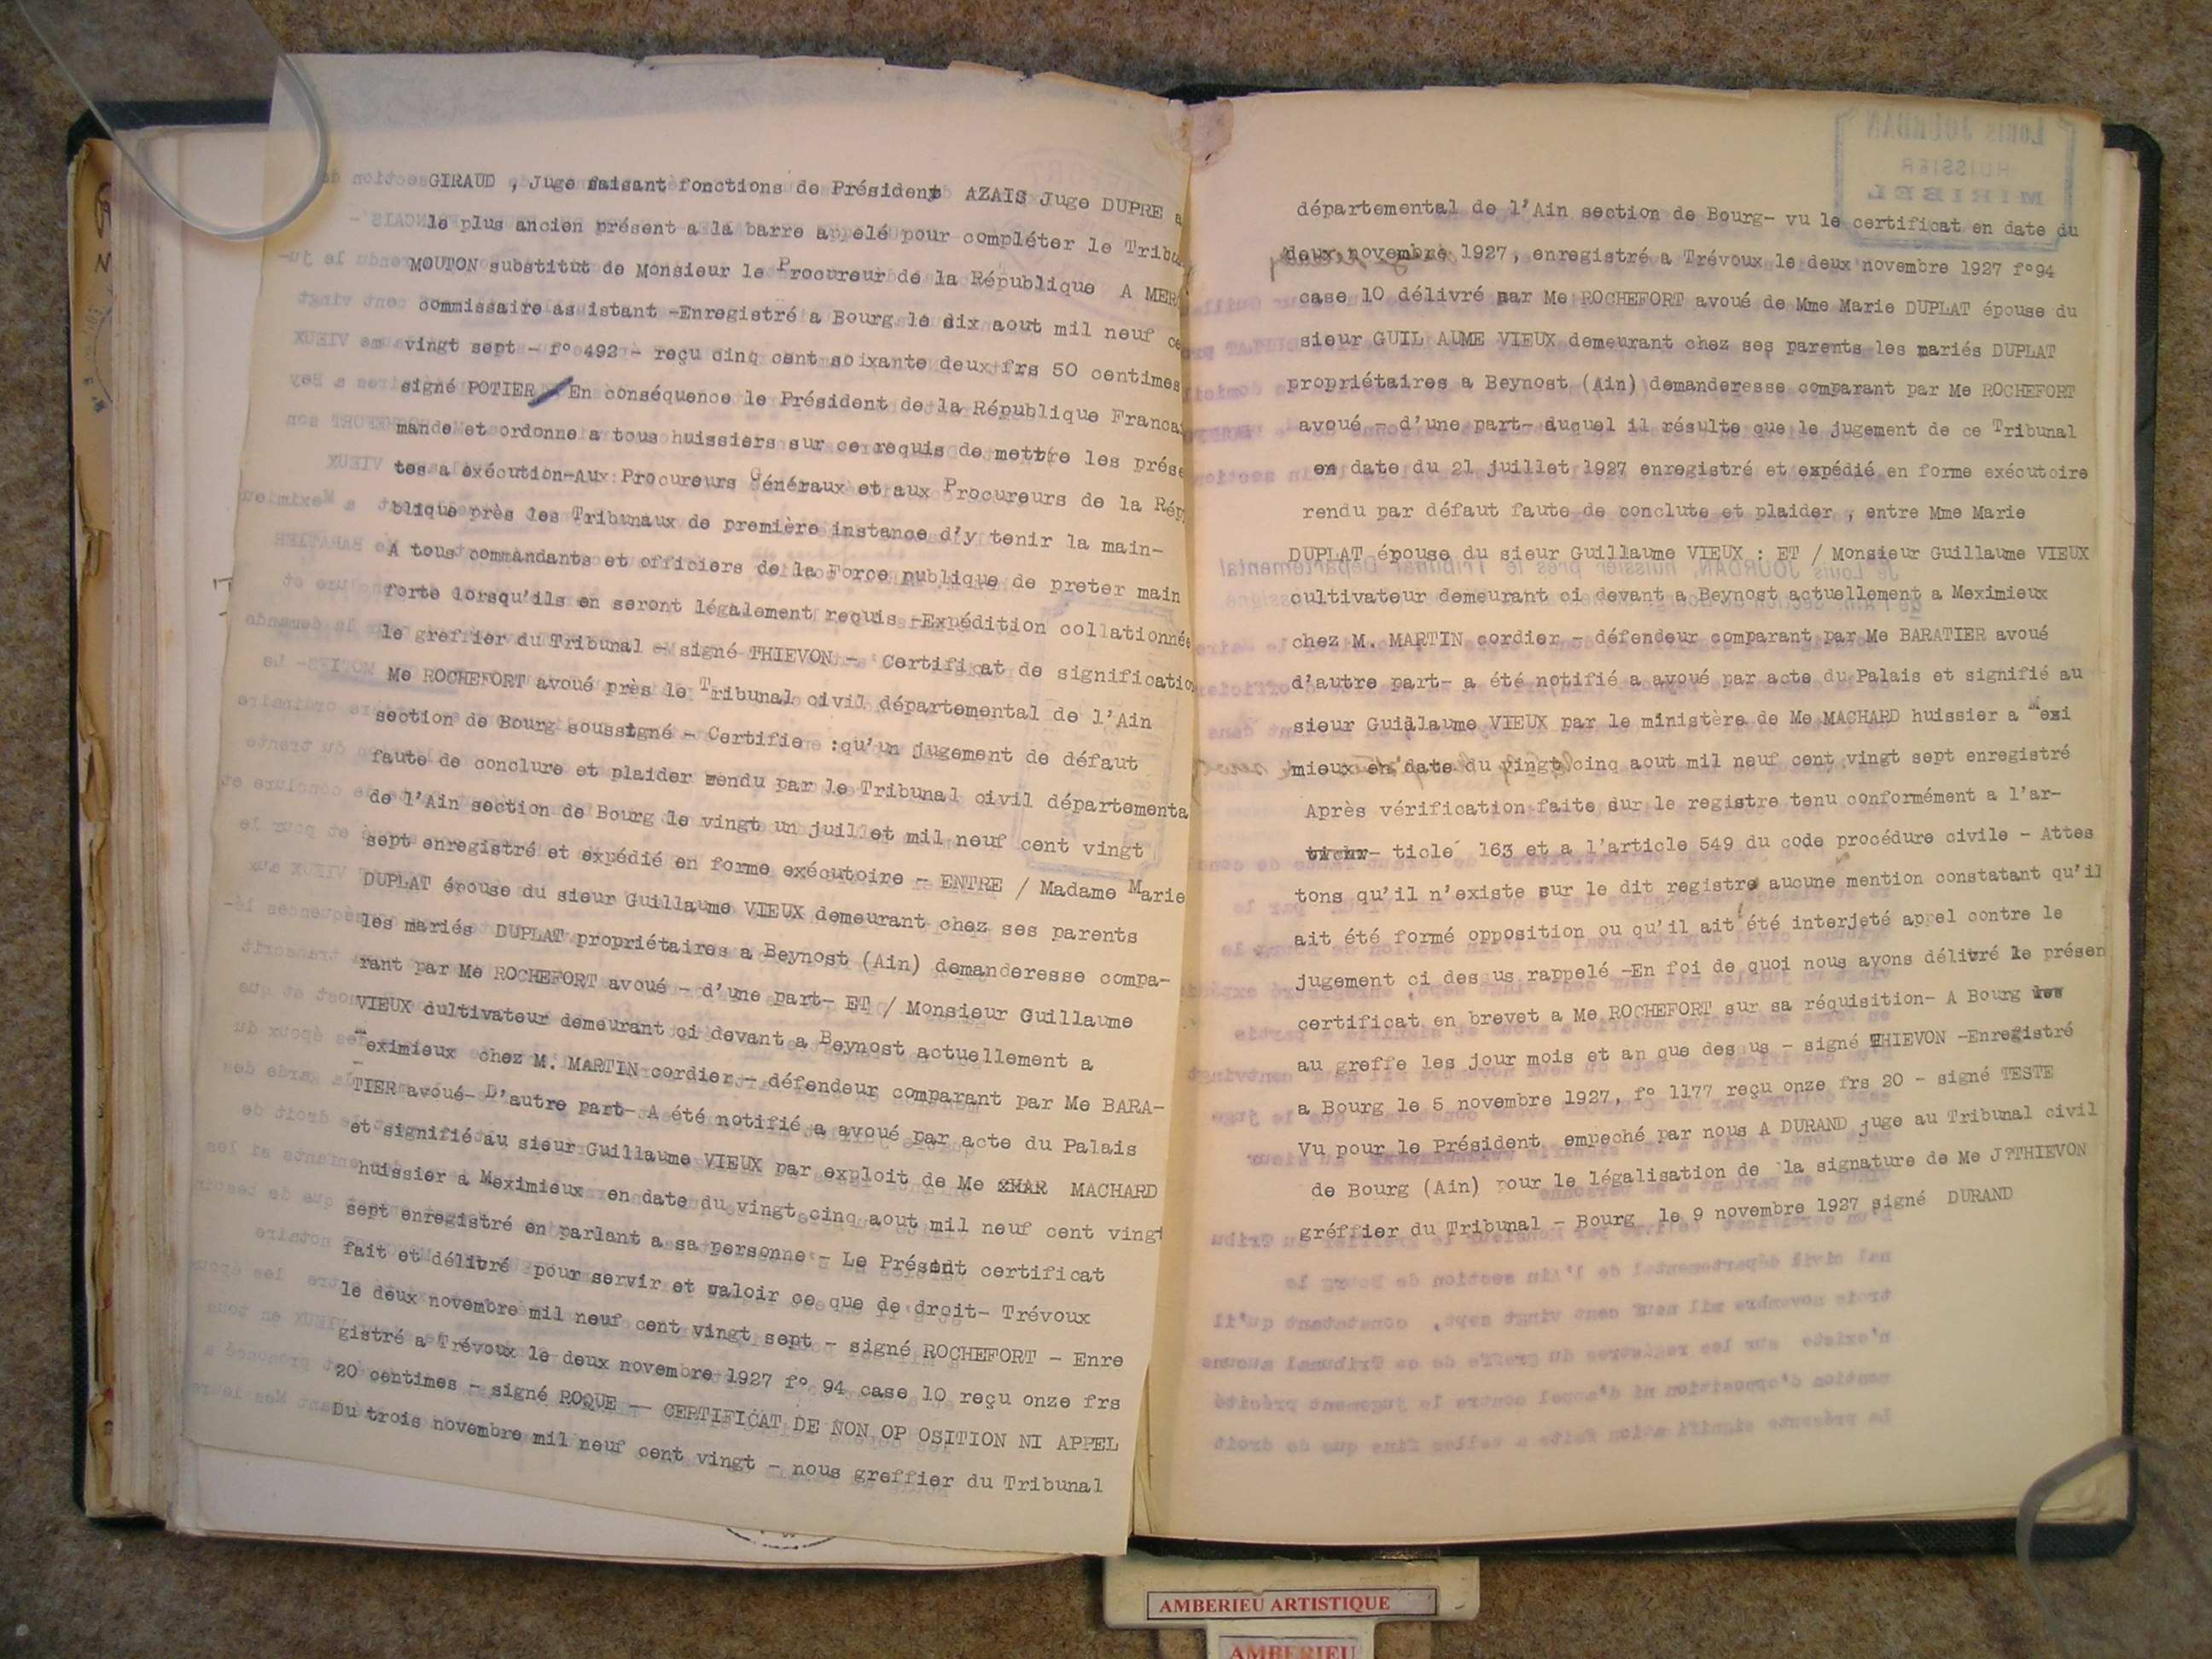 GIRAUD , Juge faisant fonctions de Président AZAIS Juge DUPRE a
le plus ancien présent a la barre appelé pour compléter le Tribu
MOUTON substitut de Monsieur le Procureur de la République A MER
commissaire as istant -Enregistré a Bourg le dix aout mil neuf ce
vingt sept - f° 492 - reçu cinq cent soixante deux frs 50 centimes
signé POTIER / En conséquence le Président de la République Francai
mande et ordonne a tous huissiers sur ce requis de mettre les prése
tes a exécution-Aux Procureurs Généraux et aux Procureurs de la Rép
blique près les Tribunaux de première instance d'y tenir la main-
A tous commandants et officiers de la Force publique de preter main
forte lorsqu'ils en seront légalement requis -Expédition collationnée
le greffier du Tribunal - signé THIEVON - Certificat de significatio
Me ROCHEFORT avoué près le Tribunal civil départemental de l'Ain
section de Bourg soussigné - Certifie :qu'un jugement de défaut
faute de conclure et plaider rendu par le Tribunal civil départementa
de l'Ain section de Bourg le vingt un juillet mil neuf cent vingt
sept enregistré et expédié en forme exécutoire - ENTRE / Madame Marie
DUPLAT épouse du sieur Guillaume VIEUX demeurant chez ses parents
les mariés DUPLAT propriétaires a Beynost (Ain) demanderesse compa-
rant par Me ROCHEFORT avoué - d'une part- ET / Monsieur Guillaume
VIEUX cultivateur demeurant ci devant a Beynost actuellement a
meximieux chez M. MARTIN cordier - défendeur comparant par Me BARA-
TIER avoué- D'autre part- A été notifié a avoué par acte du Palais
et signifié au sieur Guillaume VIEUX par exploit de Me MACHARD
huissier a Meximieux en date du vingt cinq aout mil neuf cent vingt
sept enregistré en parlant a sa personne - Le Présent certificat
fait et délivré pour servir et valoir ce que de droit- Trévoux
le deux novembre mil neuf cent vingt sept - signé ROCHEFORT - Enre
gistré a Trévoux le deux novembre 1927 f° 94 case 10 reçu onze frs
20 centimes - signé ROQUE -- CERTIFICAT DE NON OP OSITION NI APPEL
Du trois novembre mil neuf cent vingt - nous greffier du Tribunal
départemental de l'Ain section de Bourg- vu le certificat en date du
deux novembre 1927, enregistré a Trévoux le deux novembre 1927 f°94
case 10 délivré par Me ROCHEFORT avoué de Mme Marie DUPLAT épouse du
sieur GUIL AUME VIEUX demeurant chez ses parents les mariés DUPLAT
propriétaires a Beynost (Ain) demanderesse comparant par Me ROCHEFORT
avoué - d'une part- duquel il résulte que le jugement de ce Tribunal
en date du 21 juillet 1927 enregistré et expédié en forme exécutoire
rendu par défaut faute de conclute et plaider , entre Mme Marie
DUPLAT épouse du sieur Guillaume VIEUX : ET / Monsieur Guillaume VIEUX
cultivateur demeurant ci devant a Beynost actuellement a Meximieux
chez M. MARTIN cordier - défendeur comparant par Me BARATIER avoué
d'autre part- a été notifié a avoué par acte du Palais et signifié au
sieur Guillaume VIEUX par le ministère de Me MACHARD huissier a Mexi
mieux en date du vingt cinq aout mil neuf cent vingt sept enregistré
Après vérification faite sur le registre tenu conformément a l'ar-
ticle 163 et a l'article 549 du code procédure civile - Attes
tons qu'il n'existe sur le dit registre aucune mention constatant qu'il
ait été formé opposition ou qu'il ait été interjeté appel contre le
jugement ci des us rappelé -En foi de quoi nous avons délivré le présen
certificat en brevet a Me ROCHEFORT sur sa réquisition- A Bourg
au greffe les jour mois et an que des us - signé THIEVON -Enregistré
a Bourg le 5 novembre 1927, f° 1177 reçu onze frs 20 - signé TESTE
Vu pour le Président empeché par nous A DURAND juge au Tribunal civil
de Bourg (Ain) pour le légalisation de la signature de Me J?THIEVON
gréffier du Tribunal - Bourg le 9 novembre 1927 signé DURAND
LOUIS JOURDAN
HUISSIER
MIRIBEL
AMBERIEU ARTISTIQUE
AMBERIEU